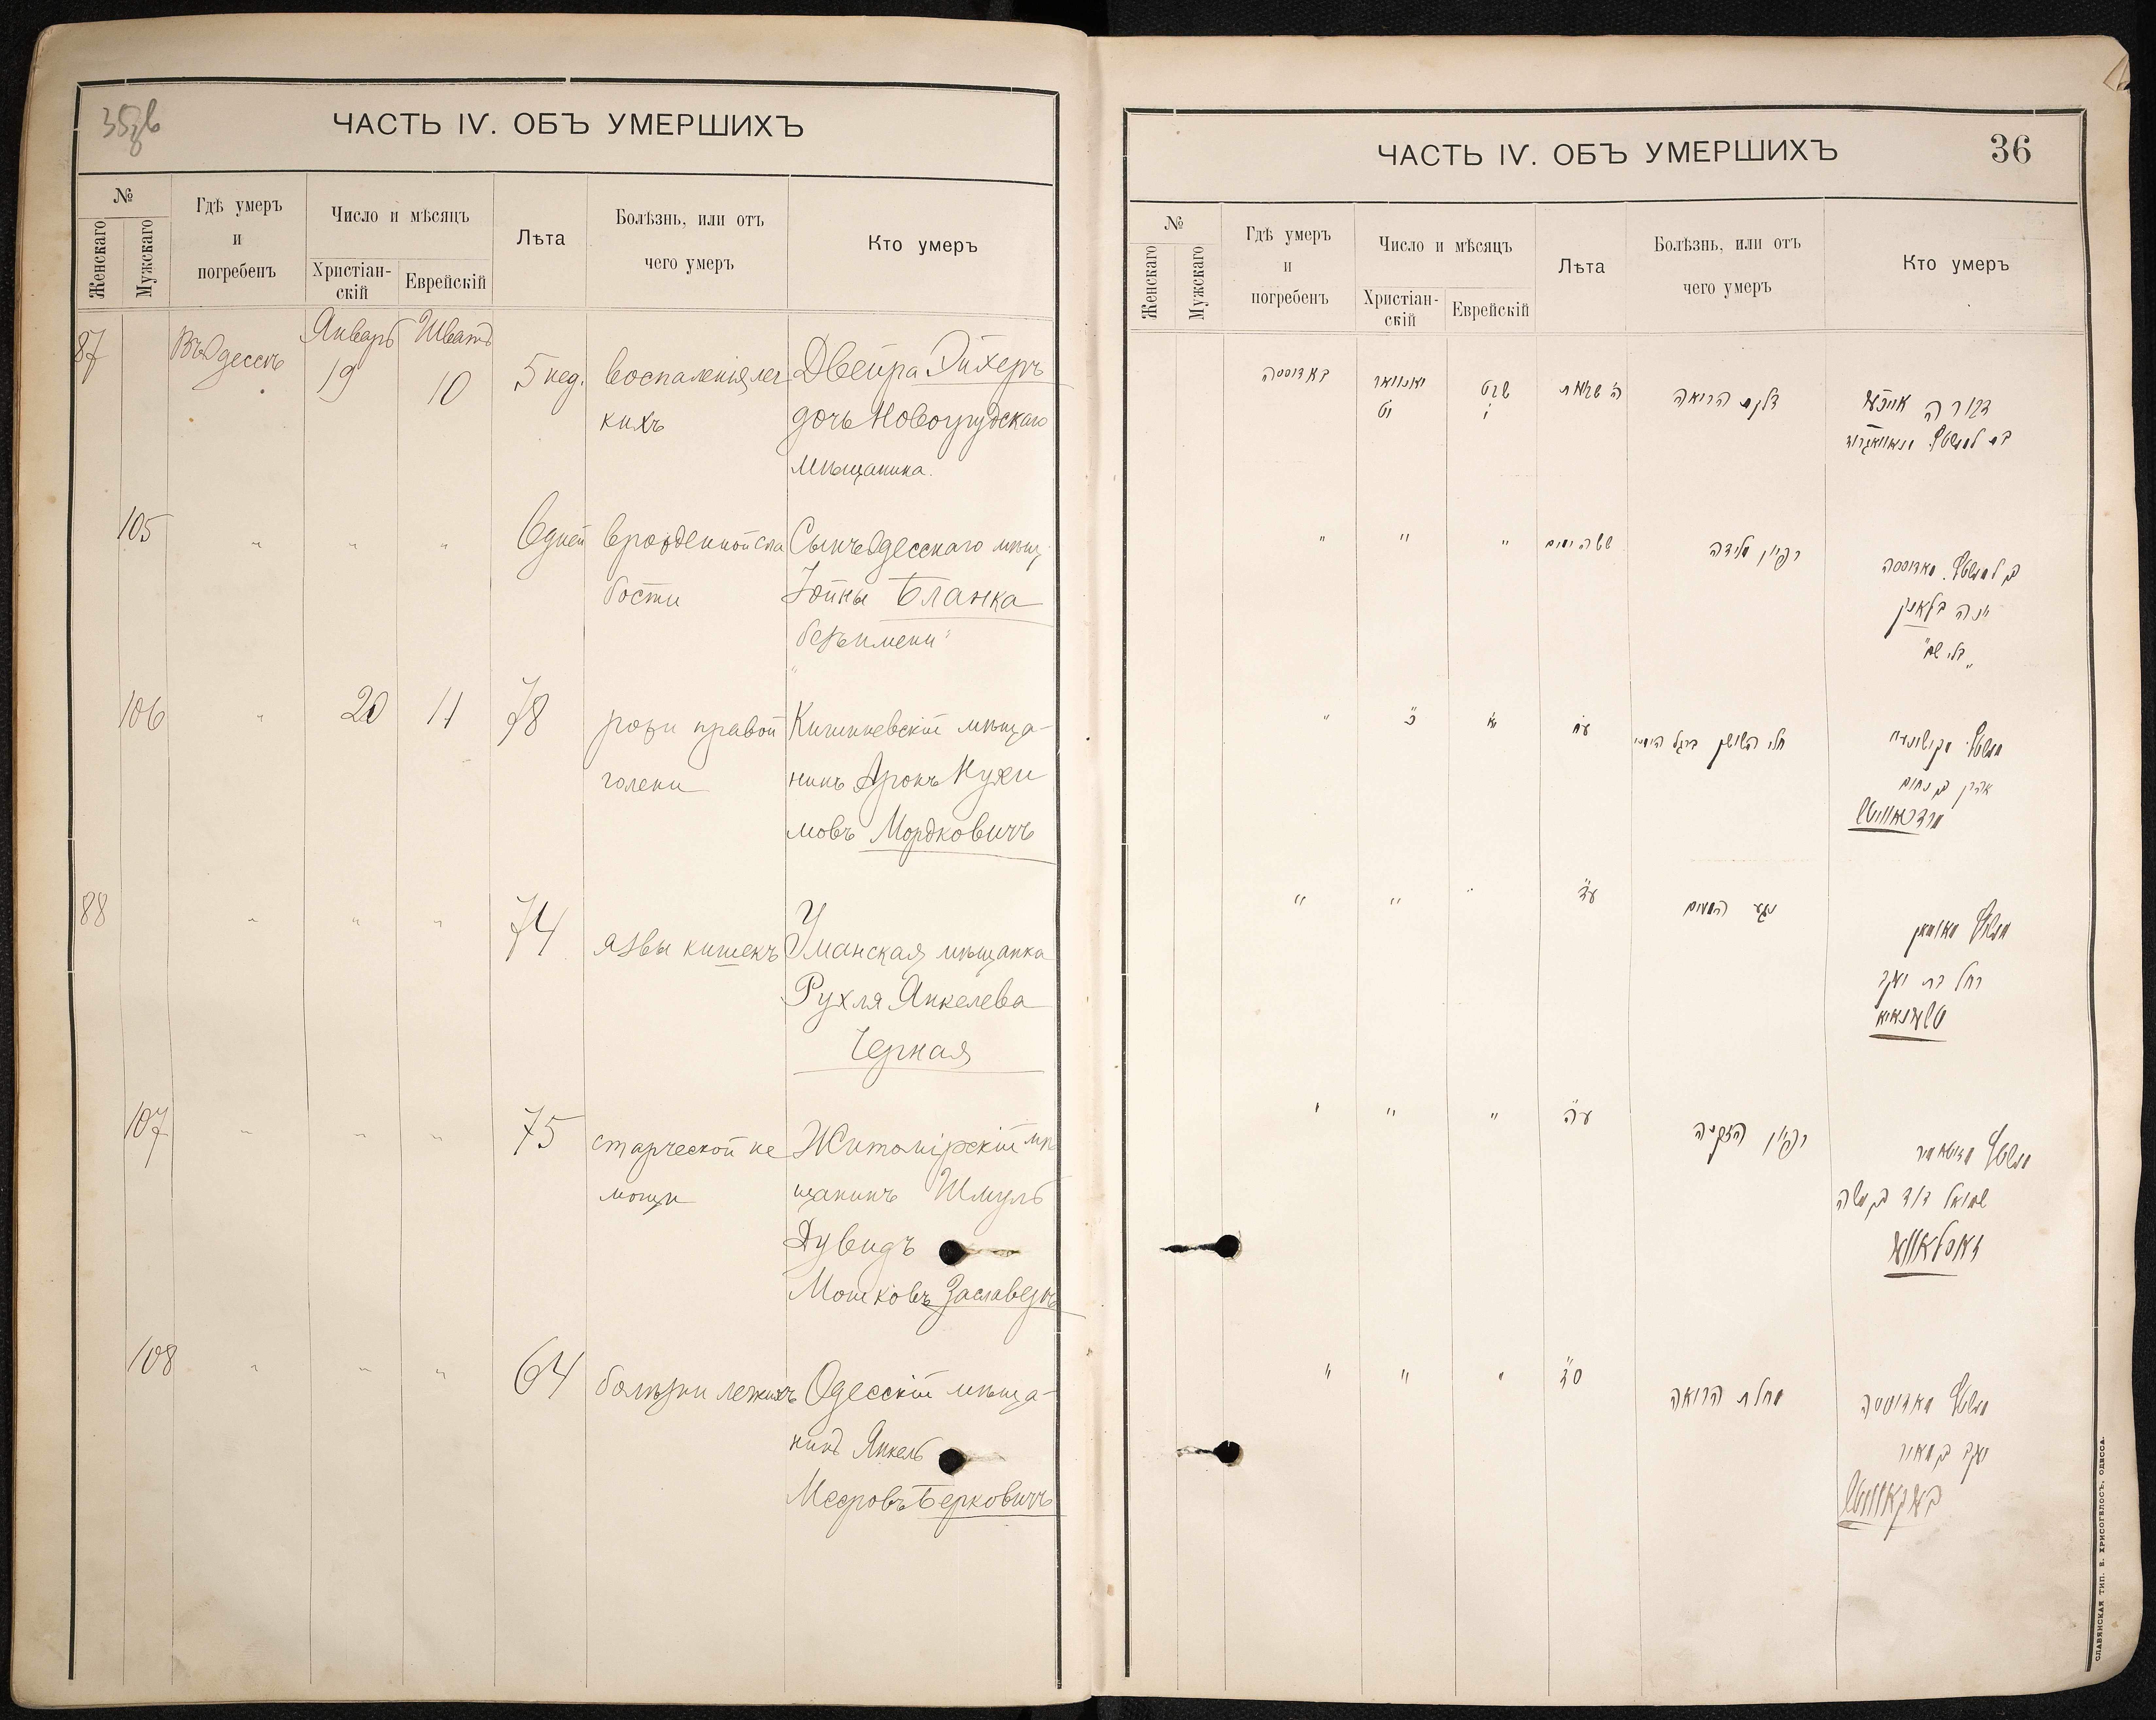 ЧАСТЬ IV. ОБЪ УМЕРШИХЪ
№
Женскаго
Мужскаго
Гдѣ умеръ
и
погребенъ
Число и мѣсяцъ
Христіан-
скій
Еврейскій
Лѣта
Болѣзнь, или отъ
чего умеръ
Кто умеръ
87
Въ Одессѣ
Январь
19
Шватъ
10
5 нед.
воспаленія лег
кихъ
Двейра Эйхеръ
дочь Новогрудскаго
мѣщанина.
105
" " "
6 дней
врожденной сла
бости
Сынъ Одесскаго мѣщ.
Іойны Бланка
"безъ имени"
106
"
20
11
78
рожи правой
голени
Кишиневскій мѣща-
нинъ Аронъ Нухи
мовъ Мордковичъ
88
" " "
74
язвы кишекъ
Уманская мѣщанка
Рухля Янкелева
Черная
107
" " "
75
старческой не
мощи
Житомірскій мѣ
щанинъ Шмуль
Дувидъ
Мошковъ Заславеръ
108
" " "
64
болѣзни легкихъ
Одесскій мѣща-
нинъ Янкель
Мееровъ Берковичъ
ЧАСТЬ IV. ОБЪ УМЕРШИХЪ
36
№
Женскаго
Мужскаго
Гдѣ умеръ
и
погребенъ
Число и мѣсяцъ
Христіан-
скій
Еврейскій
Лѣта
Болѣзнь, или отъ
чего умеръ
Кто умеръ
יאנוואר
יט
שבט
י
דלקת הריאה
" " "
רפיון לידה
יונה בלאנק
"בלי שם"
"
כ
יא
עח
אהרן בן נחום
" " "
עד
נגע המעים
רחל בת יעקב
" " "
עה
רפיון הזקנה
שמואל דוד בן משה
" " "
סד
מחלת הריאה
יעקב בן מאיר
СЛАВЯНСКАЯ ТИП. Е. ХРИСОГЕЛОСЪ, ОДЕССА.